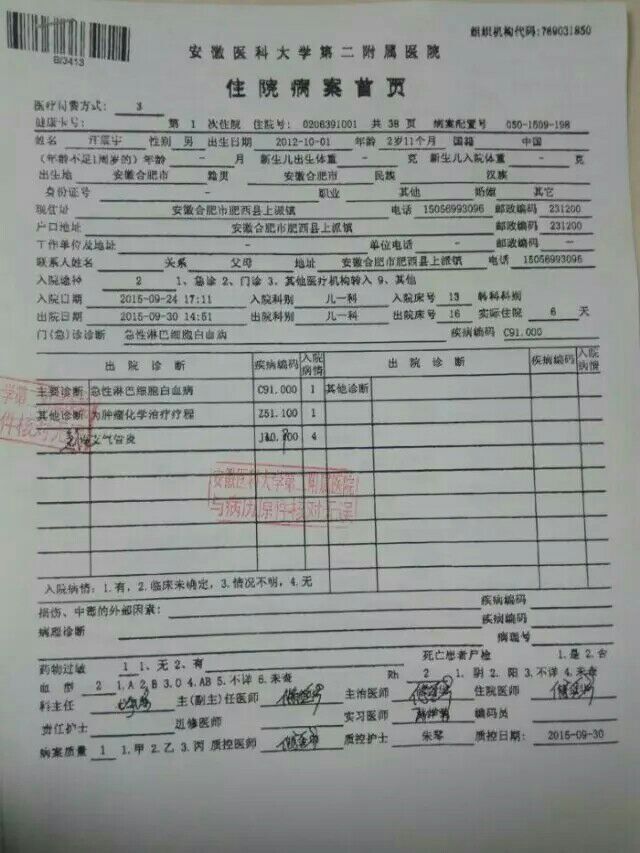 组织机构代码:769031850
BI3413
安徽医科大学第二附属医院
住院病案首页
医疗付费方式: 3
健康卡号: 第 1 次住院 住院号: 0206391001 共 38 页 病案配置号 050-1509-198
姓名 性别 男 出生日期 2012-10-01 年龄 2岁11个月 国籍 中国
(年龄不足1周岁的) 年龄 - 月 新生儿出生体重 - 克 新生儿入院体重 - 克
出生地 安徽合肥市 籍贯 安徽合肥市 民族 汉族
身份证号 - 职业 其他 婚姻 其它
现住址 安徽合肥市肥西县上派镇 电话 15056993096 邮政编码 231200
户口地址 安徽合肥市肥西县上派镇 邮政编码 231200
工作单位及地址 - 单位电话 - 邮政编码 -
联系人姓名 关系 父母 地址 安徽合肥市肥西县上派镇 电话 15056993096
入院途径 2 1、急诊 2、门诊 3、其他医疗机构转入 9、其他
入院日期 2015-09-24 17:11 入院科别 儿一科 入院床号 13 转科科别
出院日期 2015-09-30 14:51 出院科别 儿一科 出院床号 16 实际住院 6 天
门(急)诊诊断 急性淋巴细胞白血病 疾病编码 C91.000
出院诊断 疾病编码 入院病情 出院诊断 疾病编码 入院病情
主要诊断 急性淋巴细胞白血病 C91.000 1 其他诊断
其他诊断 为肿瘤化学治疗疗程 Z51.100 1
支气管炎 4
安徽医科大学第二附属医院
与病历原件核对无误
入院病情: 1.有, 2.临床未确定, 3.情况不明, 4.无
损伤、中毒的外部因素: 疾病编码
疾病编码
病理诊断 病理号
药物过敏 1 1、无 2、有 死亡患者尸检 1.是 2.否
血型 2 1.A 2.B 3.O 4.AB 5.不详 6.未查 Rh 2 1. 阴 2. 阳 3.不详 4.未查
科主任 主(副主)任医师 主治医师 住院医师
责任护士 进修医师 实习医师 编码员
病案质量 1 1.甲 2.乙 3.丙 质控医师 质控护士 朱琴 质控日期: 2015-09-30